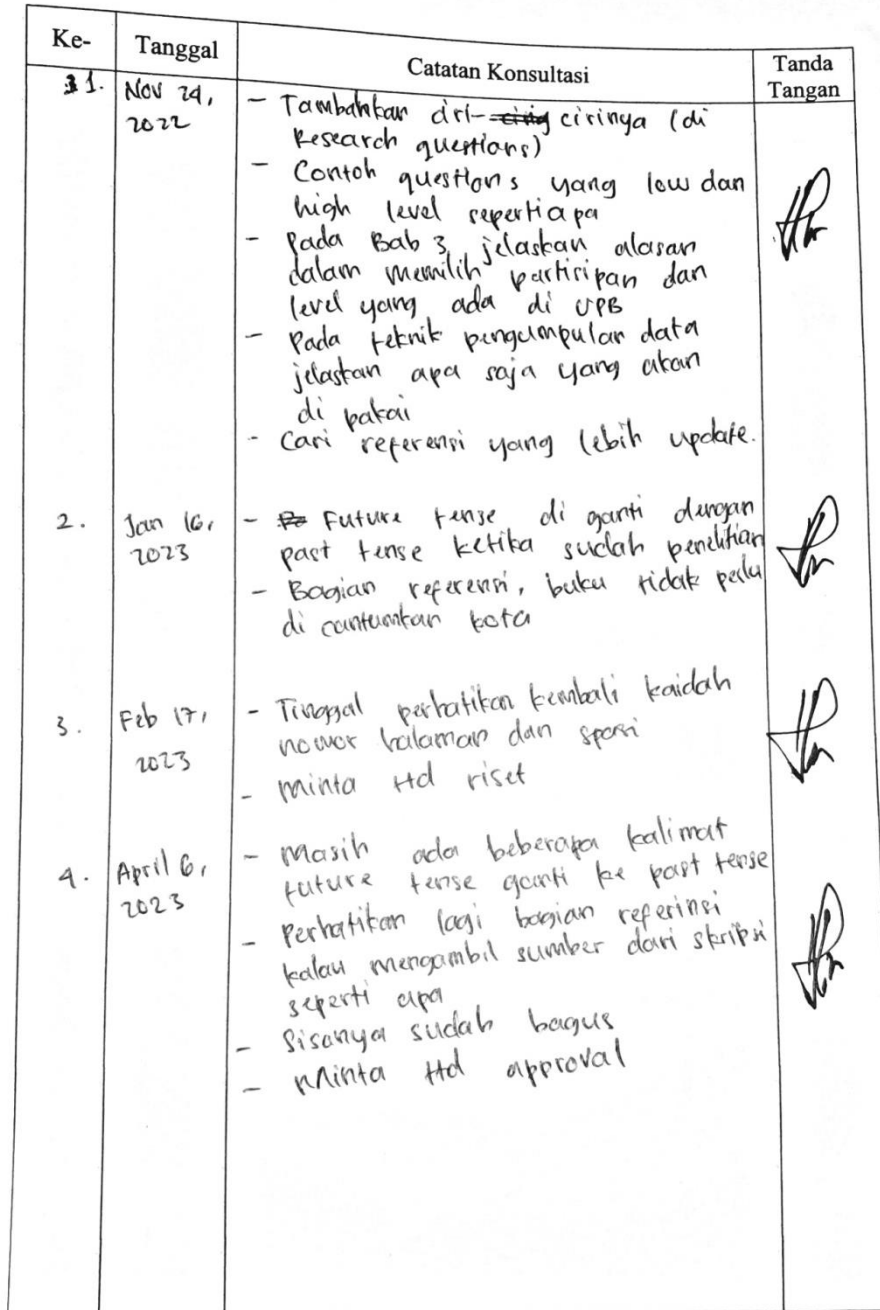 Ke- Tanggal Catatan Konsultasi Tanda Tangan
1. Nov 24, 2022
- Tambahkan ciri-ciring cirinya (di
Research questions)
- Contoh questions yang low dan
high level seperti apa
- Pada Bab 3, jelaskan alasan
dalam memilih partisipan dan
level yang ada di UPB
- Pada teknik pengumpulan data
jelaskan apa saja yang akan
di pakai
- Cari referensi yang lebih update.
2. Jan 16, 2023
- Future tense di ganti dengan
past tense ketika sudah penelitian
- Bagian referensi, buku tidak perlu
di cantumkan kota
3. Feb 17, 2023
- Tinggal perhatikan kembali kaidah
nomor halaman dan spasi
- Minta ttd riset
4. April 6, 2023
- Masih ada beberapa kalimat
future tense ganti ke past tense
- Perhatikan lagi bagian referinsi
kalau mengambil sumber dari skripsi
seperti apa
- Sisanya sudah bagus
- Minta ttd approval